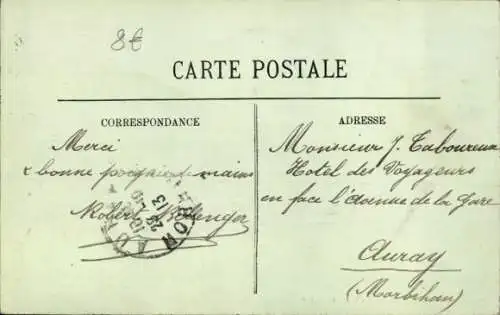 8€
CARTE POSTALE
CORRESPONDANCE
ADRESSE
Merci
& bonne poignée de mains
Robert
Monsieur J. Taboureux
Hotel des Voyageurs
en face l'Avenue de la Gare
Auray
(Morbihan)